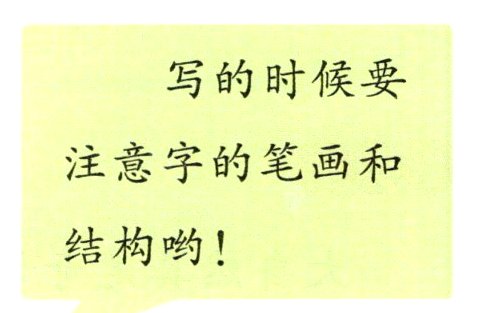 写的时候要
注意字的笔画和
结构哟！